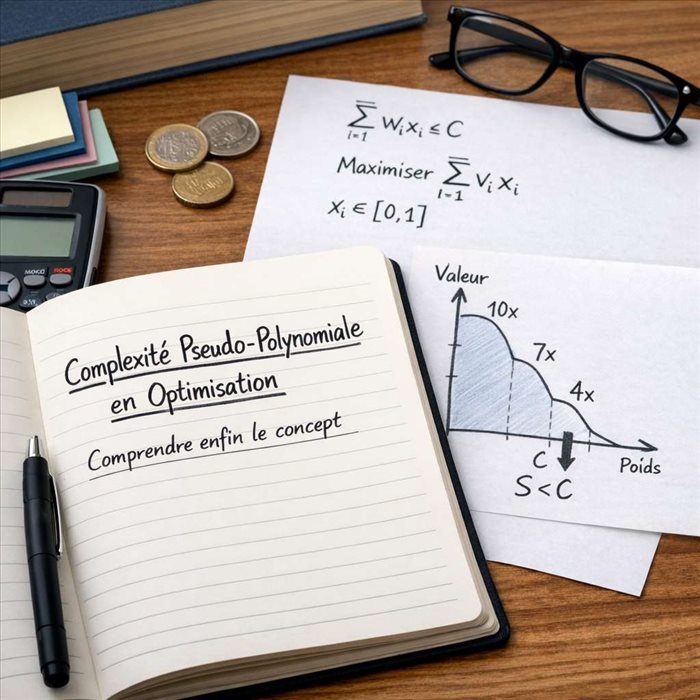 Σ Wᵢxᵢ ≤ C
i=1
Maximiser Σ Vᵢ xᵢ
i=1
xᵢ ∈ [0,1]
Valeur
10x
7x
4x
C
Poids
S < C
Complexité Pseudo-Polynomiale
en Optimisation
Comprendre enfin le concept